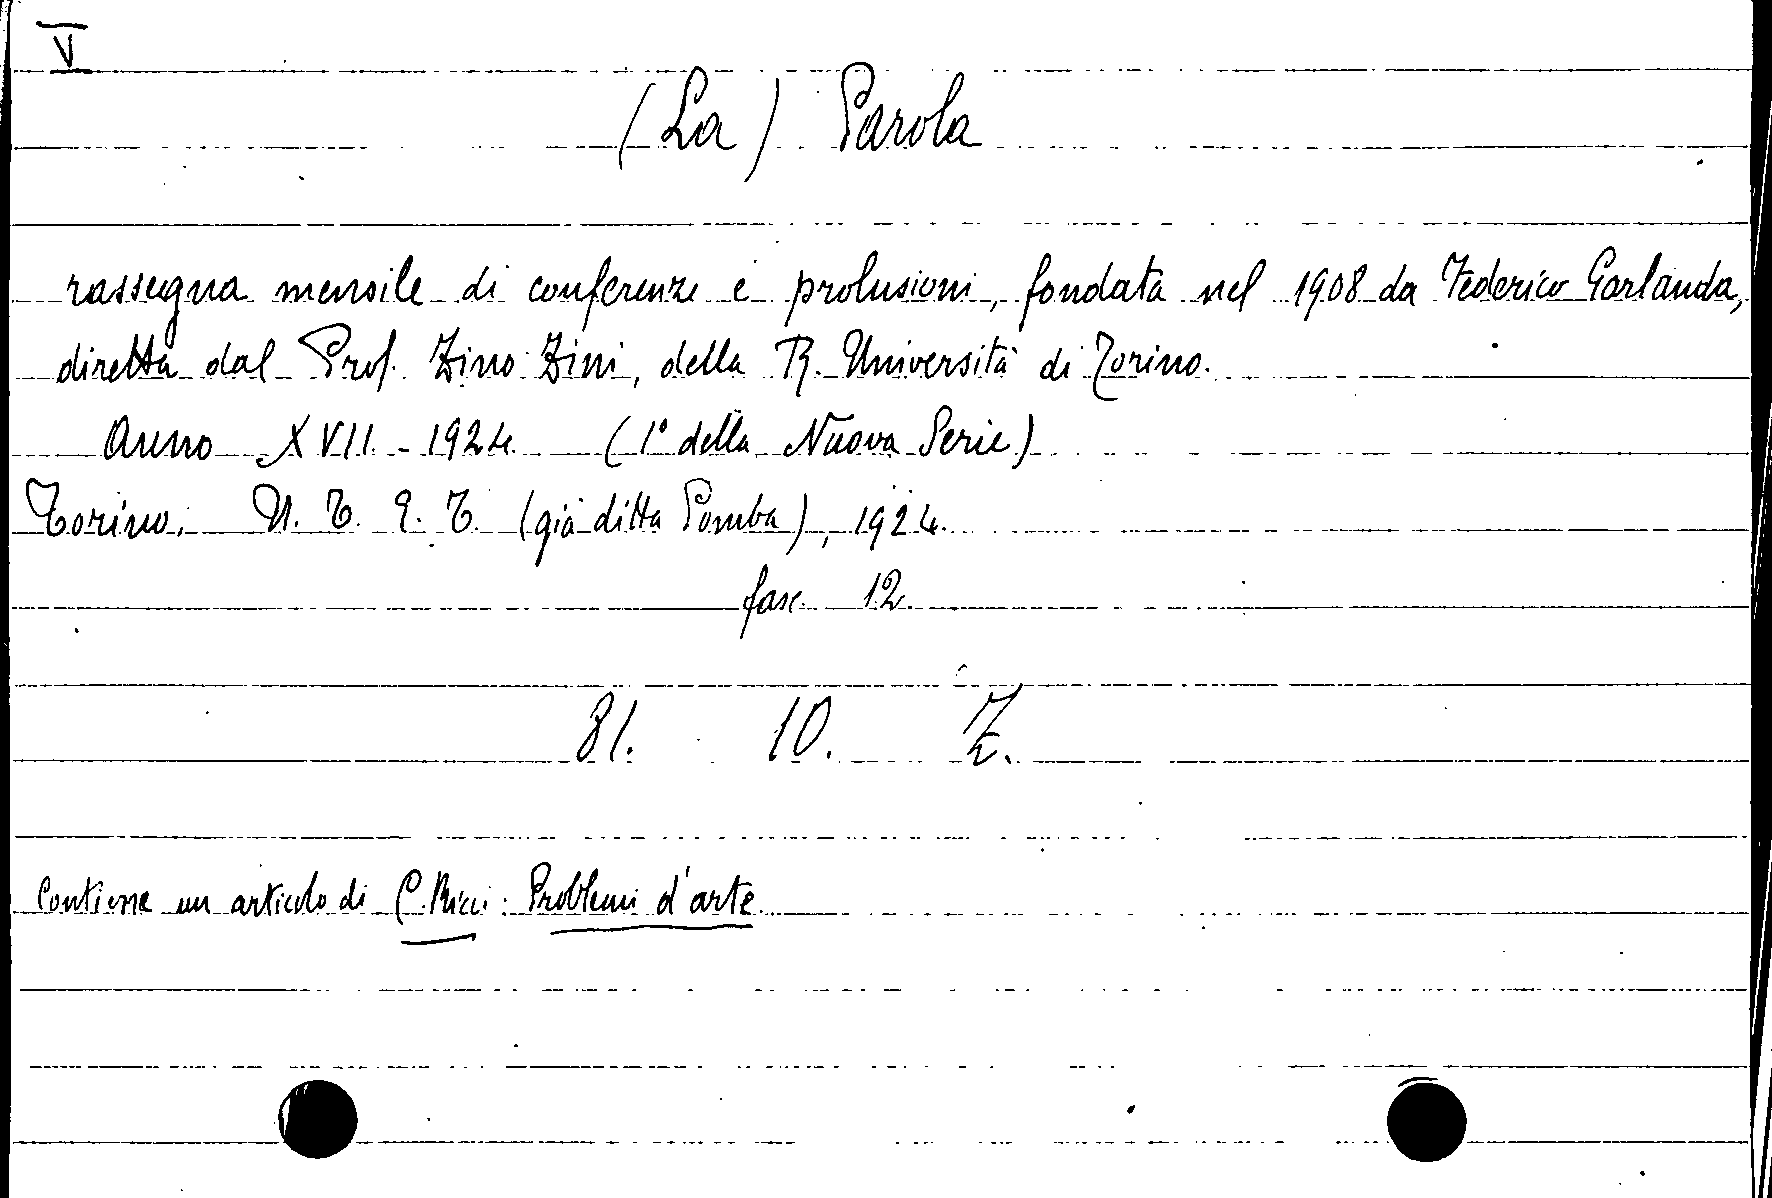 V
(La) Parola
rassegna mensile di conferenze e prolusioni, fondata nel 1908 da Federico Garlanda,
diretta dal Prof. Zino Zini, della R. Università di Torino.
Anno XVII - 1924 (1° della Nuova Serie)
Torino. U. T. E. T. (già ditta Pomba), 1924.
fasc. 12.
81. 10. Z.
Contiene un articolo di C. Ricci: Problemi d'arte